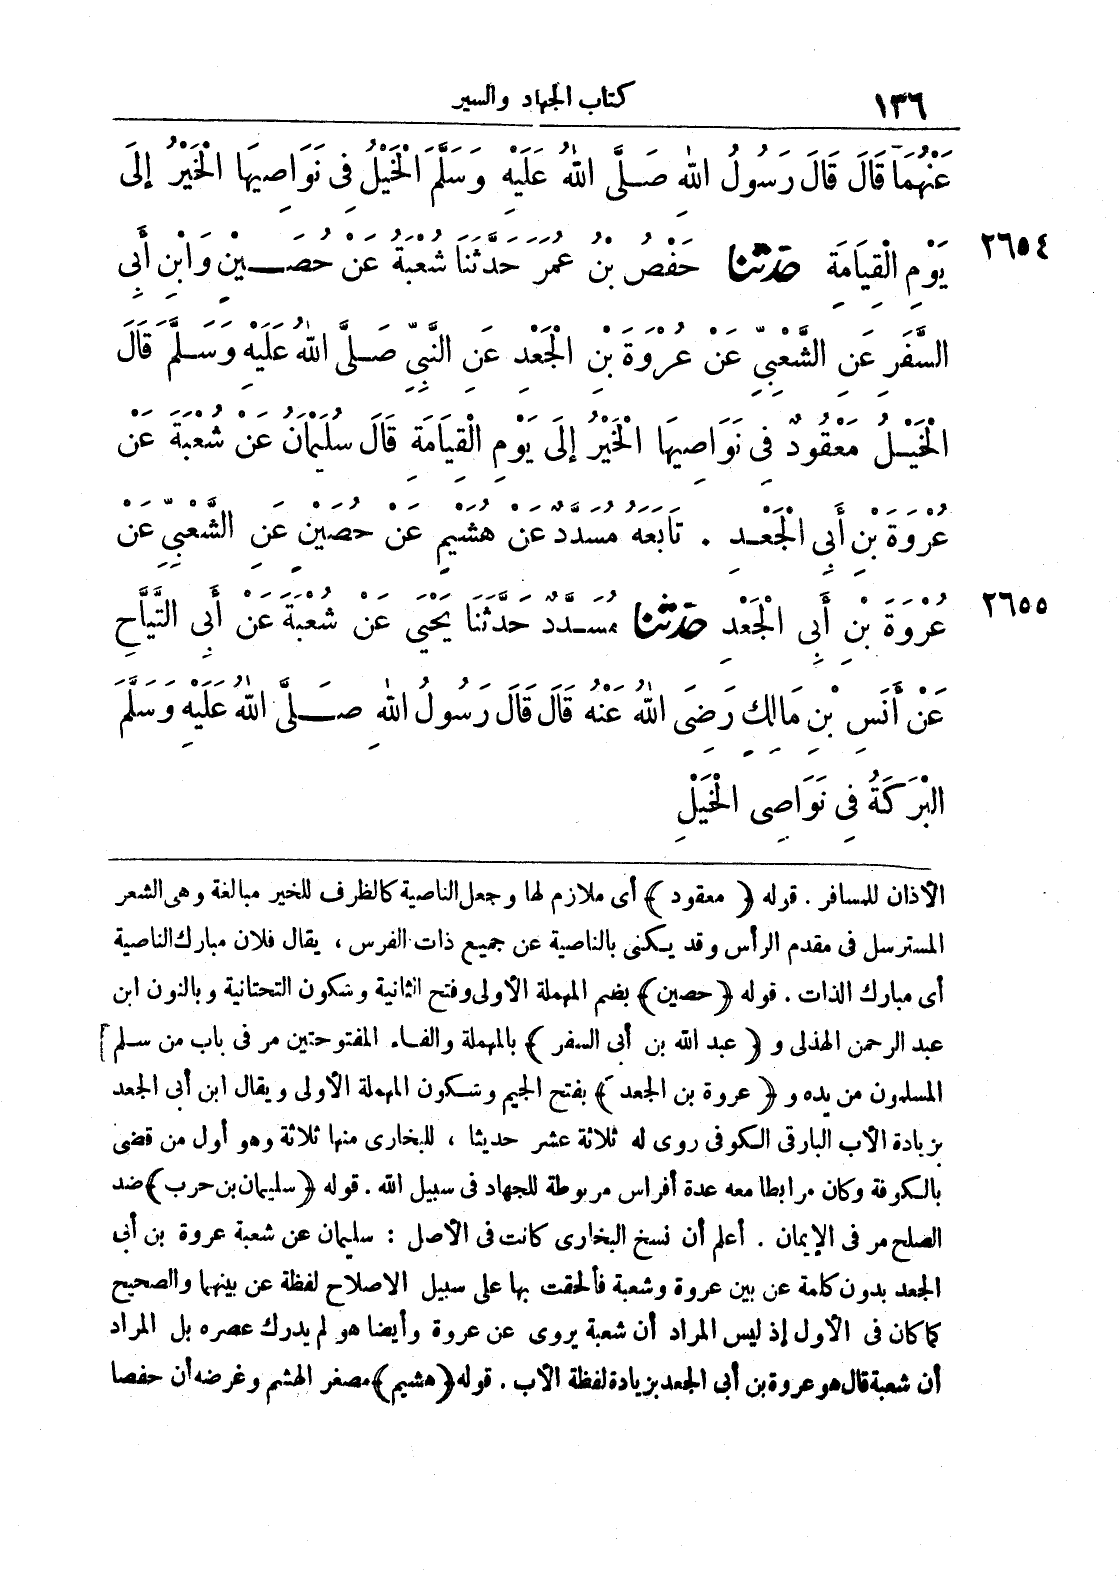 ١٣٦ كتاب الجهاد والسير
عَنْهُمَا قَالَ قَالَ رَسُولُ اللهِ صَلَّى اللهُ عَلَيْهِ وَسَلَّمَ الْخَيْلُ فِى نَوَاصِيهَا الْخَيْرُ إِلَى
٢٦٥٤ يَوْمِ الْقِيَامَةِ حدثنا حَفْصُ بْنُ عُمَرَ حَدَّثَنَا شُعْبَةُ عَنْ حُصَيْنٍ وَابْنِ أَبِى
السَّفَرِ عَنِ الشَّعْبِىِّ عَنْ عُرْوَةَ بْنِ الْجَعْدِ عَنِ النَّبِىِّ صَلَّى اللهُ عَلَيْهِ وَسَلَّمَ قَالَ
الْخَيْلُ مَعْقُودٌ فِى نَوَاصِيهَا الْخَيْرُ إِلَى يَوْمِ الْقِيَامَةِ قَالَ سُلَيْمَانُ عَنْ شُعْبَةَ عَنْ
عُرْوَةَ بْنِ أَبِى الْجَعْدِ . تَابَعَهُ مُسَدَّدٌ عَنْ هُشَيْمٍ عَنْ حُصَيْنٍ عَنِ الشَّعْبِىِّ عَنْ
٢٦٥٥ عُرْوَةَ بْنِ أَبِى الْجَعْدِ حدثنا مُسَدَّدٌ حَدَّثَنَا يَحْيَى عَنْ شُعْبَةَ عَنْ أَبِى التَّيَّاحِ
عَنْ أَنَسِ بْنِ مَالِكٍ رَضِىَ اللهُ عَنْهُ قَالَ قَالَ رَسُولُ اللهِ صَلَّى اللهُ عَلَيْهِ وَسَلَّمَ
الْبَرَكَةُ فِى نَوَاصِى الْخَيْلِ
الأذان للمسافر . قوله ﴿ معقود ﴾ أى ملازم لها وجعل الناصية كالظرف للخير مبالغة وهى الشعر
المسترسل فى مقدم الرأس وقد يكنى بالناصية عن جميع ذات الفرس ، يقال فلان مبارك الناصية
أى مبارك الذات . قوله ﴿حصين﴾ بضم المهملة الأولى وفتح الثانية وسكون التحتانية وبالنون ابن
عبد الرحمن الهذلى و ﴿ عبد الله بن أبى السفر ﴾ بالمهملة والفاء المفتوحتين مر فى باب من سلم
المسلمون من يده و ﴿ عروة بن الجعد ﴾ بفتح الجيم وسكون المهملة الأولى ويقال ابن أبى الجعد
بزيادة الأب البارقى الكوفى روى له ثلاثة عشر حديثا ، للبخارى منها ثلاثة وهو أول من قضى
بالكوفة وكان مرابطا معه عدة أفراس مربوطة للجهاد فى سبيل الله . قوله ﴿سليمان بن حرب﴾ ضد
الصلح مر فى الإيمان . أعلم أن نسخ البخارى كانت فى الأصل : سليمان عن شعبة عروة بن أبى
الجعد بدون كلمة عن بين عروة وشعبة فألحقت بها على سبيل الاصلاح لفظة عن بينهما والصحيح
كما كان فى الأول إذ ليس المراد أن شعبة يروى عن عروة وأيضا هو لم يدرك عصره بل المراد
أن شعبة قال هو عروة بن أبى الجعد بزيادة لفظة الأب . قوله ﴿هشيم﴾ مصغر الهشم وغرضه أن حفصا